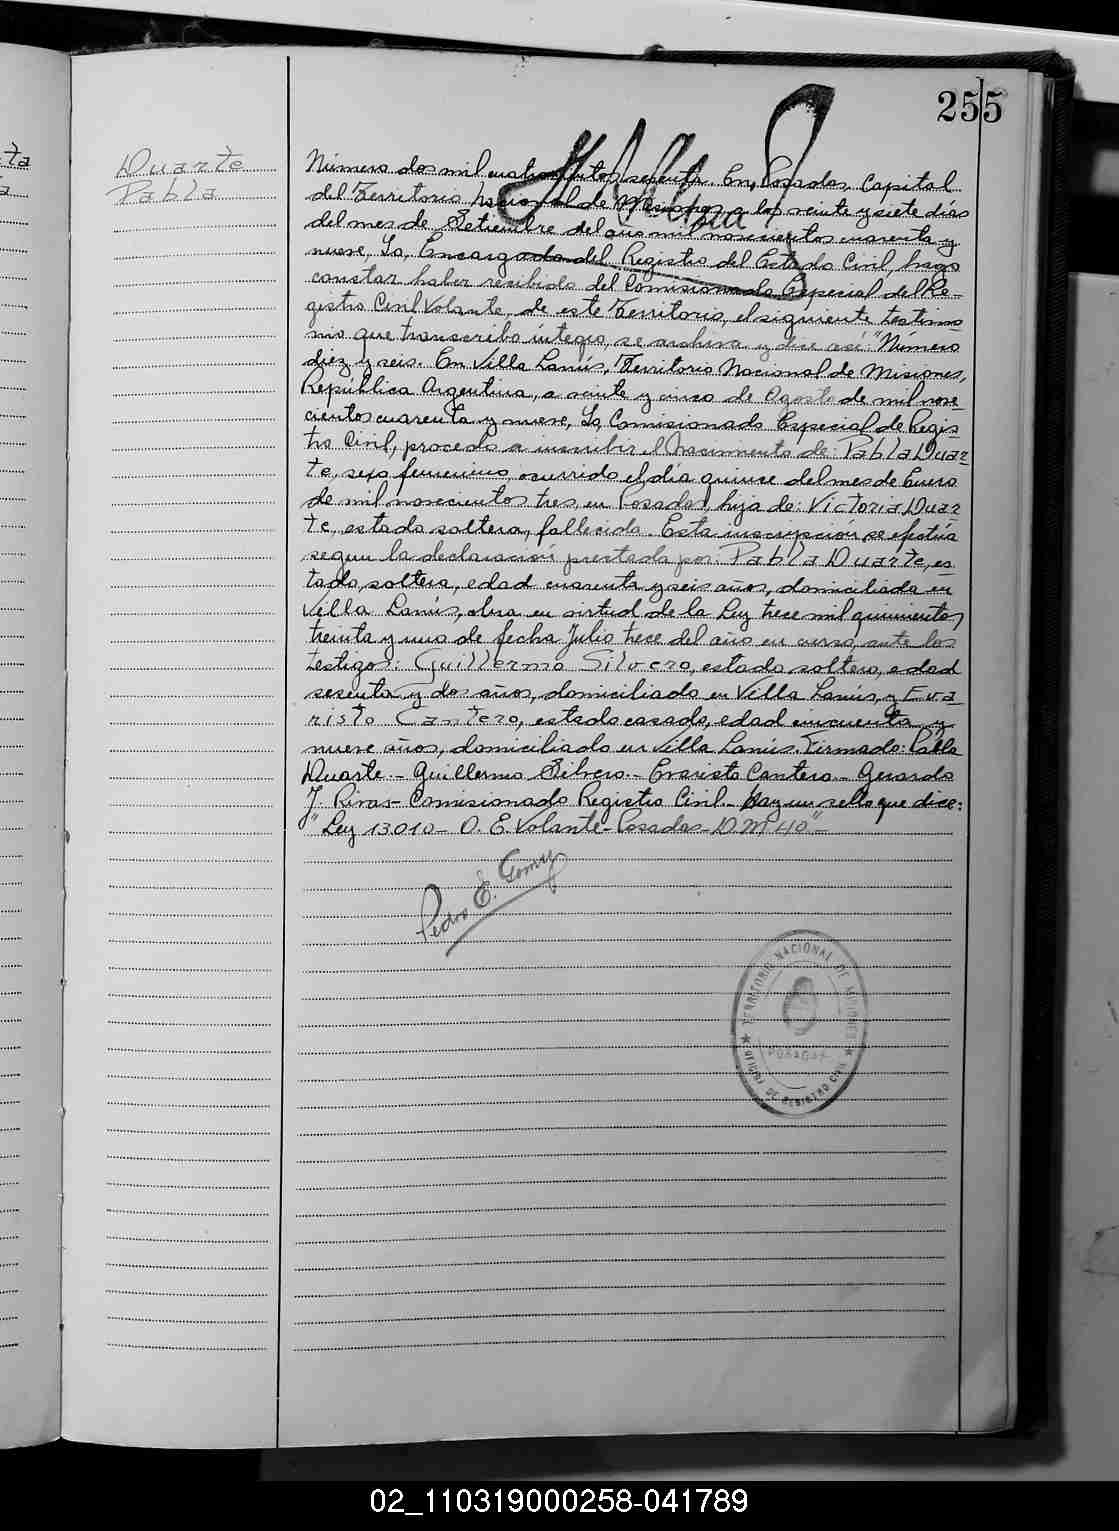 255
ta
a
Duarte
Pabla
Número dos mil cuatrocientos sesenta. En, Posadas, Capital
del Territorio Nacional de Misiones, a los veinte y siete días
del mes de Setiembre del año mil novecientos cuarenta y
nueve, Yo, Encargado del Registro del Estado Civil, hago
constar haber recibido del Comisionado Especial del Re-
gistro Civil Volante, de este Territorio, el siguiente testimo
nio que transcribo íntegro, se archiva y dice así: "Número
diez y seis. En Villa Lanús, Territorio Nacional de Misiones,
República Argentina, a veinte y cinco de Agosto de mil nove-
cientos cuarenta y nueve, Yo, Comisionado Especial de Regis-
tro Civil, procedo a inscribir el Nacimiento de: Pabla Duar-
te, sexo femenino, ocurrido el día quince del mes de Enero
de mil novecientos tres, en Posadas, hija de: Victoria Duar-
te, estado soltera, fallecida. Esta inscripción se efectúa
segun la declaración prestada por: Pabla Duarte, es
tado, soltera, edad cuarenta y seis años, domiciliada en
Villa Lanús, obra en virtud de la Ley trece mil quinientos
treinta y uno de fecha Julio trece del año en curso, ante los
testigos: Guillermo Silvero, estado soltero, edad
sesenta y dos años, domiciliado en Villa Lanús, y Eva
risto Cantero, estado casado, edad cincuenta y
nueve años, domiciliado en Villa Lanús. Firmado: Pabla
Duarte.- Guillermo Silvero.- Evaristo Cantero.- Gerardo
J. Rivas- Comisionado Registro Civil.- Hay un sello que dice:
"Ley 13010- O. E. Volante- Posadas- D.M 40"-
Pedro E. Gomez
TERRITORIO NACIONAL DE MISIONES
POSADAS
OFICINA DE REGISTRO CIVIL
02_110319000258-041789